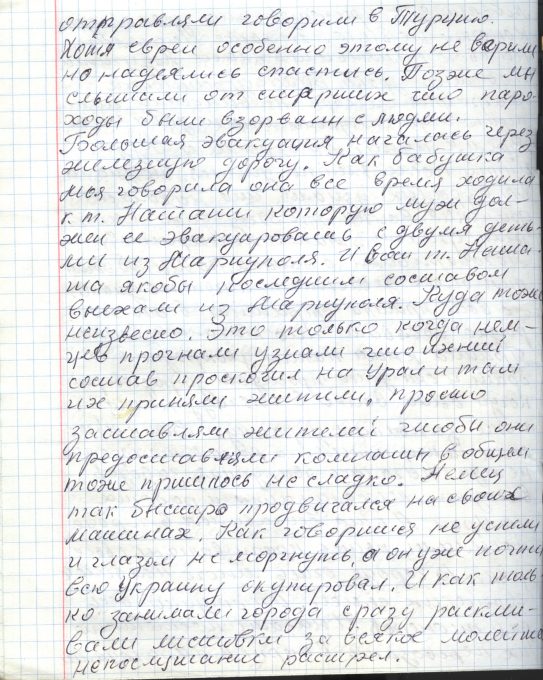 отправляли говорили в Турцию.
Хотя евреи особенно этому не верили
но надеялись спастись. Позже мы
слышали от старших что паро-
ходы были взорваны с людми.
Большая эвакуация началась через
железную дорогу. Как бабушка
моя говорила она все время ходила
к т. Наташи которую муж дол-
жен её эвакуировать с двумя деть-
ми из Мариуполя. И вот т. Ната-
ша якобы последним составом
выехали из Мариуполя. Куда тоже
неизвесно. Это только когда нем-
цев прогнали узнали что ихний
состав проскочил на Урал и там
их приняли жители, просто
заставляли жителей чтобы они
предоставляли комнаты в общем
тоже пришлось не сладко. Немец
так быстро продвигался на своих
машинах. Как говориться не успели
и глазом не моргнуть, а он уже почти
всю украину окупировал. И как толь-
ко занимали города сразу раскли-
вали листовки за всякое
непослушание растрел.